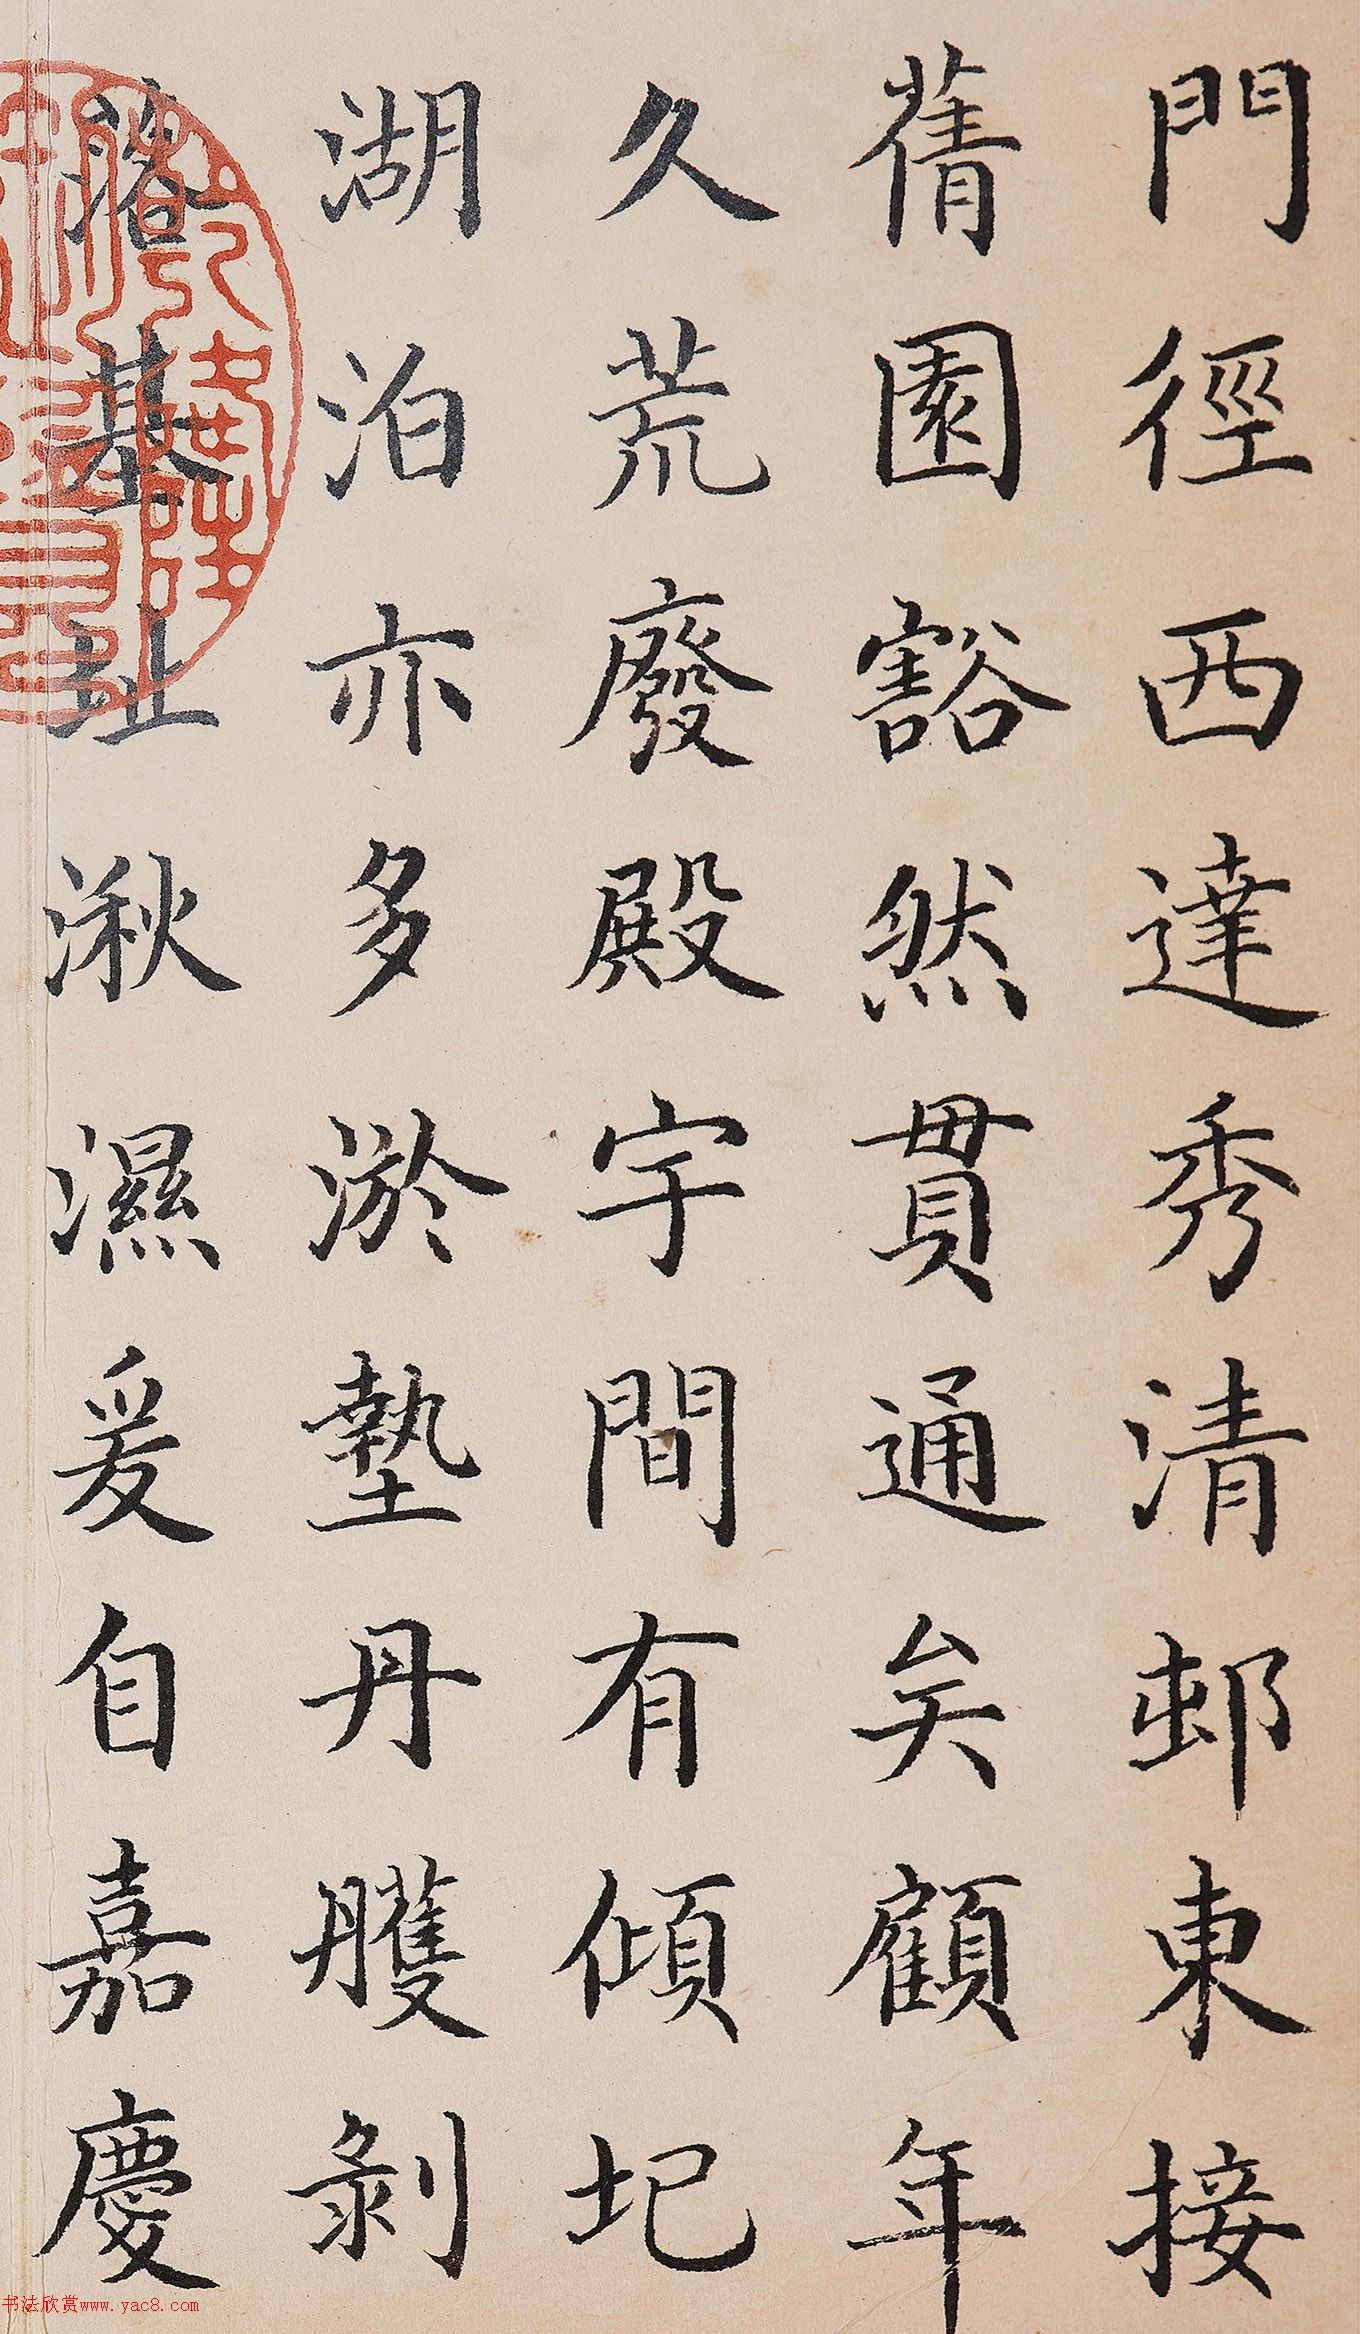 門徑西達秀清邨東接
蒨園豁然貫通矣顧年
久荒廢殿宇間有傾圮
湖泊亦多淤墊丹雘剝
落基址湫濕爰自嘉慶
书法欣赏www.yac8.com